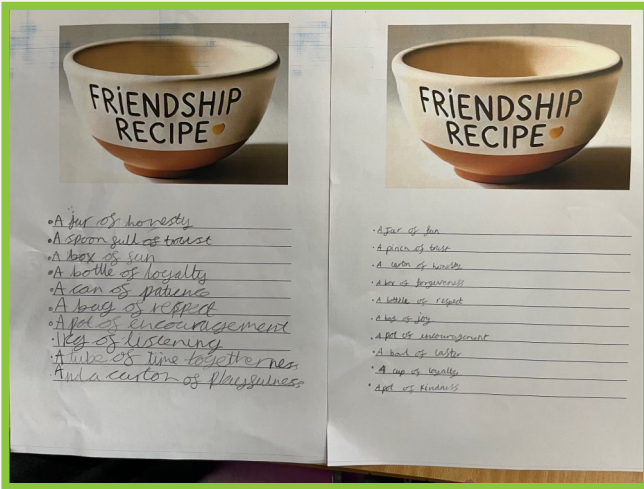 FRiENDSHIP
RECIPE
•A jar of honesty
•A spoon full of trust
•A box of fun
•A bottle of loyalty
•A can of patience
•A bag of respect
•A pot of encouragement
•1kg of listening
•A tube of time togetherness
•And a carton of playfulness
FRiENDSHIP
RECIPE
•A jar of fun
•A pinch of trust
•A carton of honesty
•A box of forgiveness
•A bottle of respect
•A bag of joy
•A pot of encouragement
•A bowl of
•A cup of loyalty
•A pot of kindness